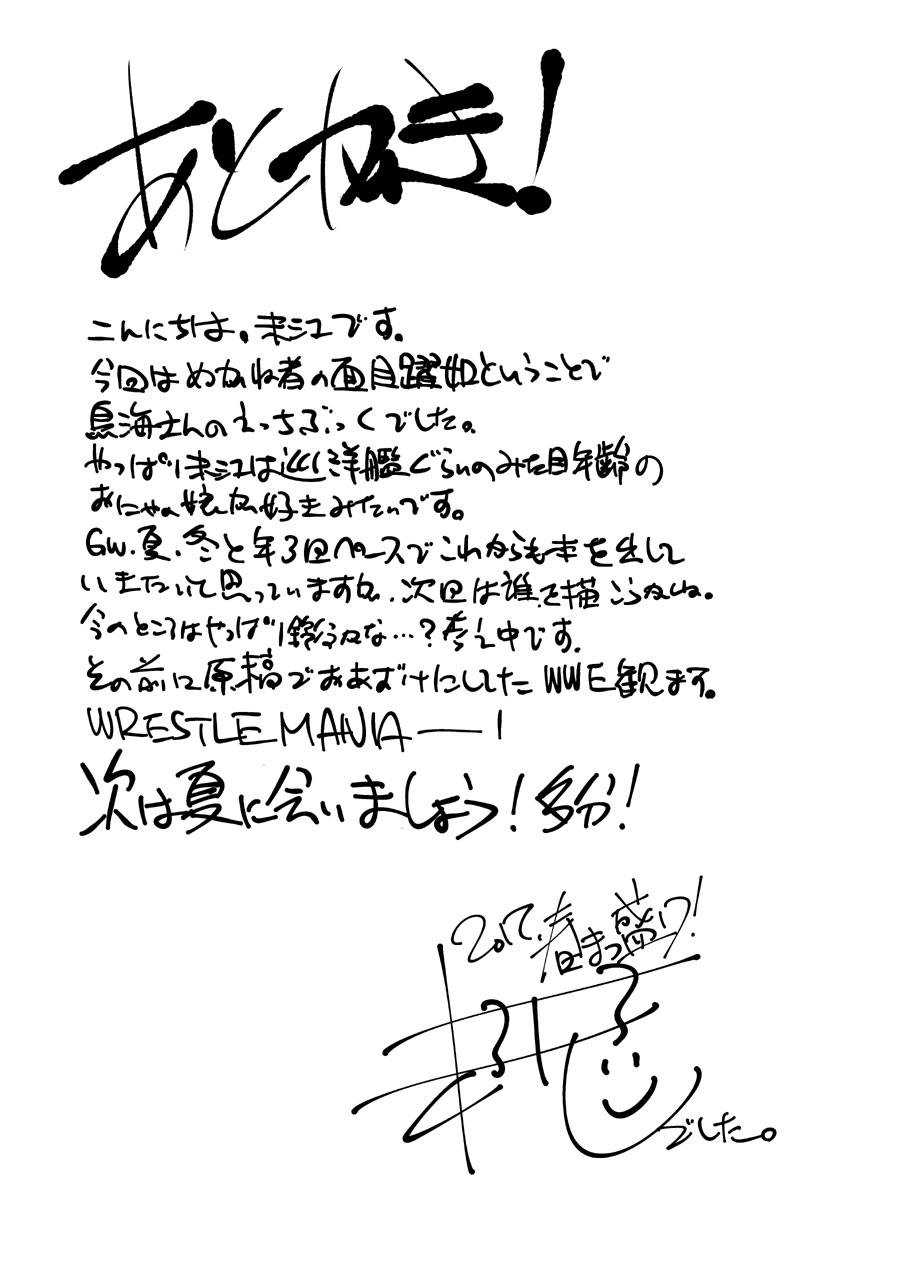 あとがき!
こんにちは。朱江です。
今回はぬかね者の面目躍如ということで
鳥海さんのえっちぶっくでした。
やっぱり朱江は巡洋艦ぐらいのみため年齢の
おにゃの娘が好きみたいです。
GW、夏、冬と年3回ペースでこれからも本を出して
いきたいって思っていますが、次回は誰を描こうかしね。
今のところはやっぱり鈴谷かな…?考え中です。
その前に原稿でおあずけにしてたWWE観ます。
WRESTLE MANIA——!
次は夏に会いましょう!多分!
2017.春まっ盛り!
でした。